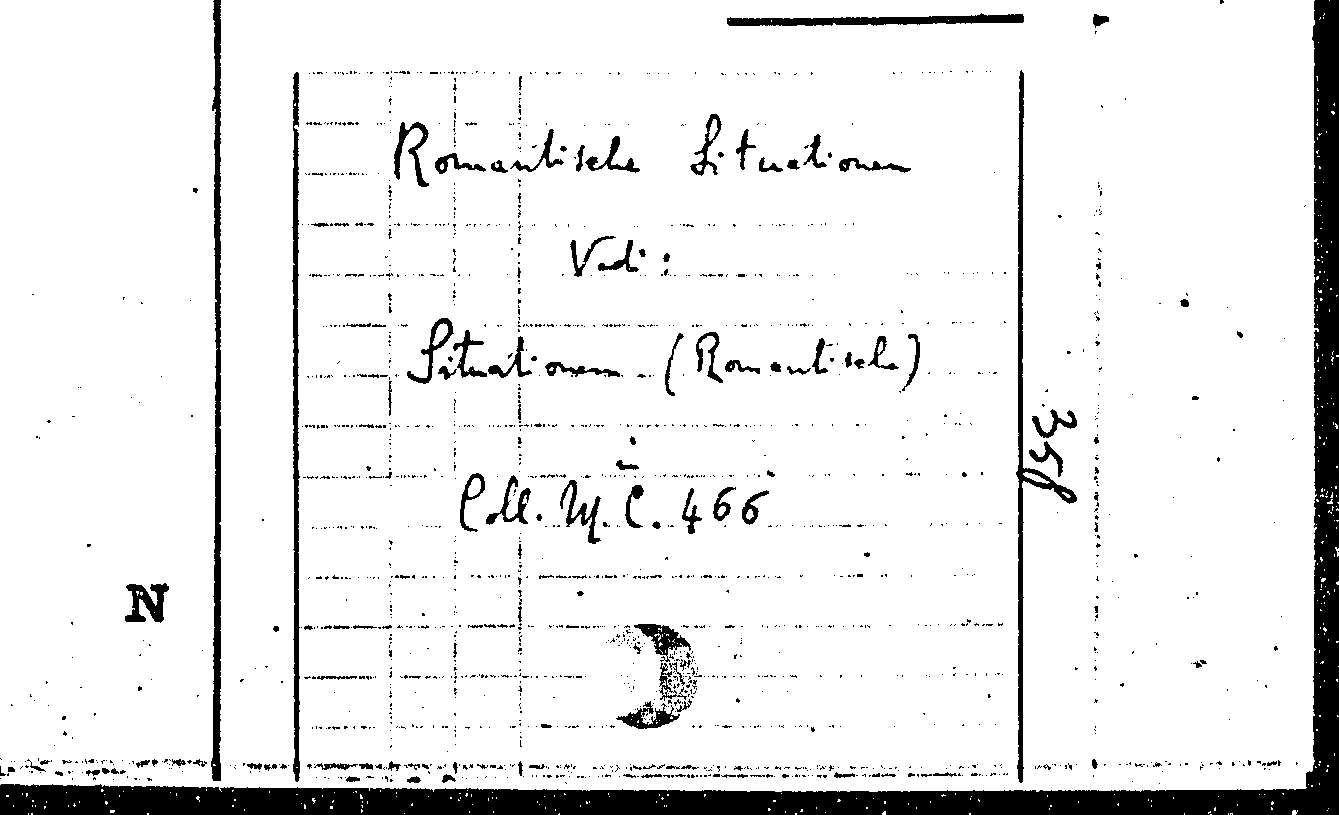 Romantische Situationen
Vedi:
Situationen (Romantische)
Coll. M. C. 466
N